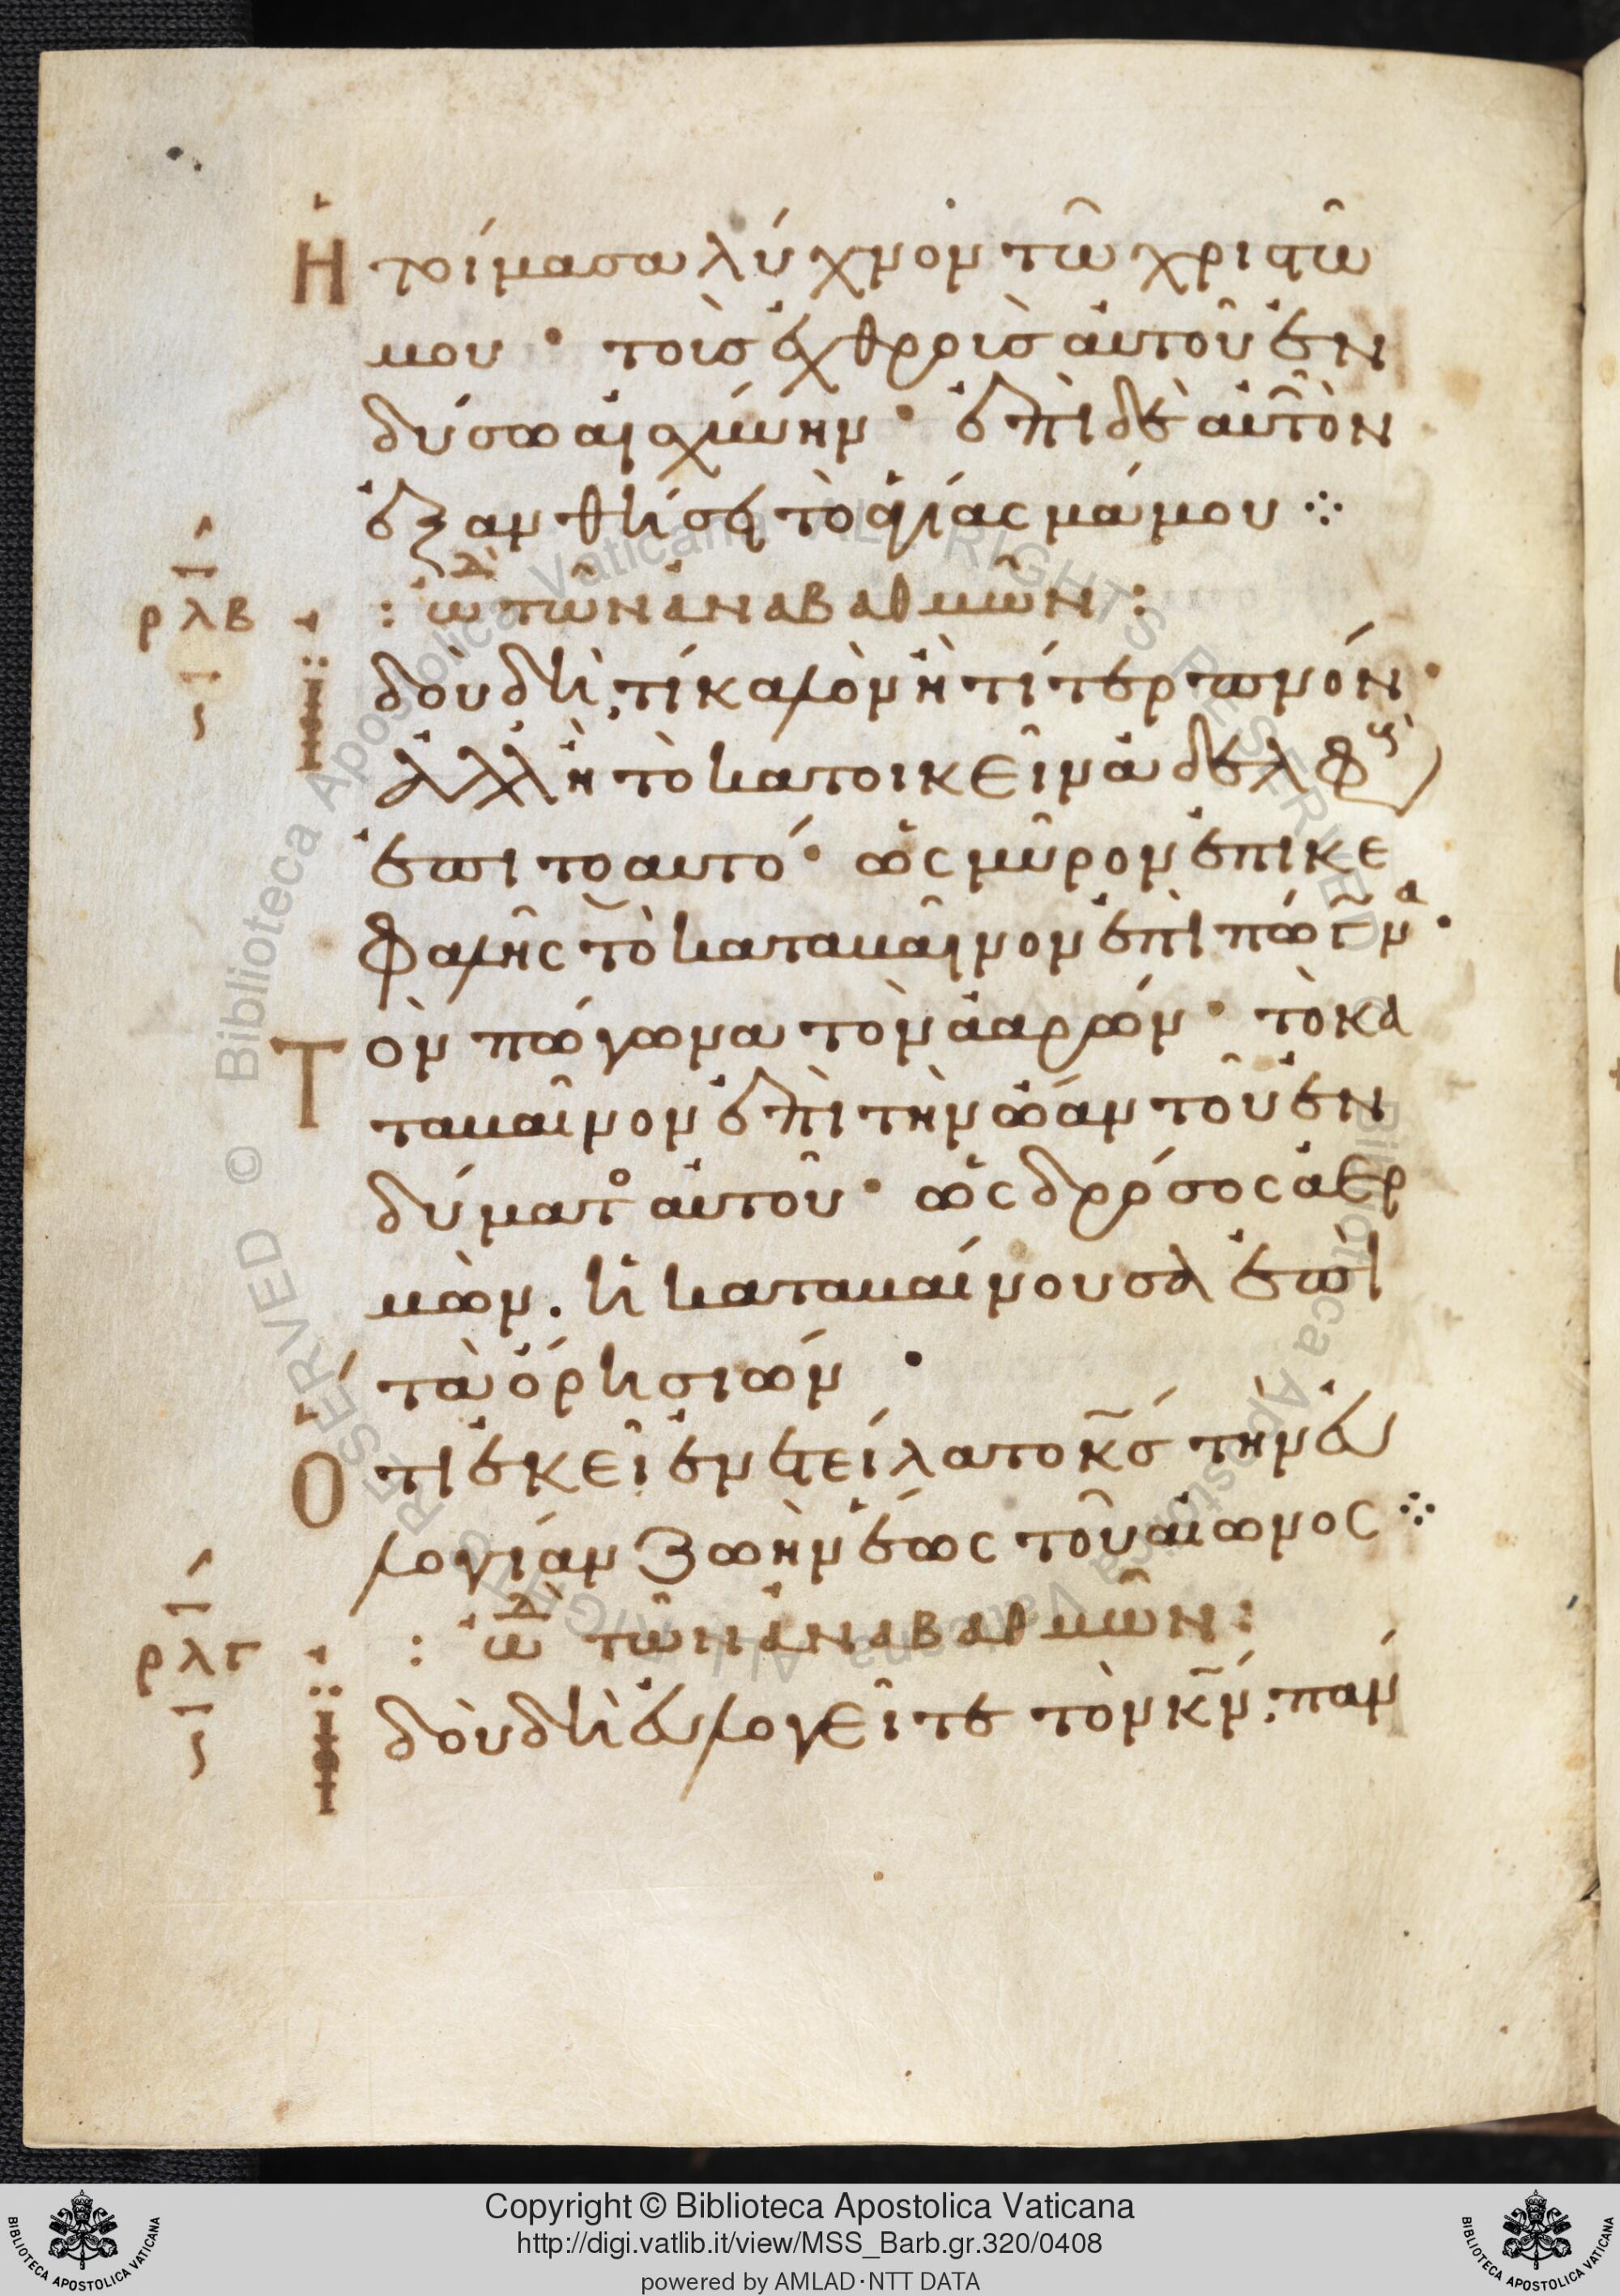 Ἡτοίμασα λύχνον τῶ χριστῶ
μου · τοὺσ ἐχθροὺσ αὐτοῦ ἐν
δύσω αἰσχύνην · ἐπὶ δὲ αὐτὸν
ἐξανθήσει τὸ ἁγίασμά μου ⁘
ρλβ : ὠδὴ τῶν ἀναβαθμῶν :
Ἰδοὺ δὴ, τί καλὸν ἢ τί τερπνόν ·
ἀλλ' ἢ τὸ κατοικεῖν ἀδελφοὺς
ἐπιτοαυτό · ὡς μῦρον ἐπι κε
φαλῆς τὸ καταβαῖνον ἐπὶ πώγωνα ·
Τὸν πώγωνα τὸν ἀαρών · τὸ κα
ταβαῖνον ἐπὶ τὴν ὤαν τοῦ ἐν
δύματος αὐτοῦ · ὡς δρόσος ἀερ
μὼν . ἡ καταβαίνουσα ἐπὶ
τὰ ὄρη σιών ·
Ὅτι ἐκεῖ ἐνετείλατο κ̅ς̅ τὴν εὐ
λογίαν ζωὴν ἕως τοῦ αἰωνος ⁘
ρλγ : ὠδὴ τῶν ἀναβαθμῶν :
Ἰδοὺ δὴ εὐλογεῖτε τὸν κ̅ν̅, πάν
Copyright © Biblioteca Apostolica Vaticana
http://digi.vatlib.it/view/MSS_Barb.gr.320/0408
powered by AMLAD·NTT DATA